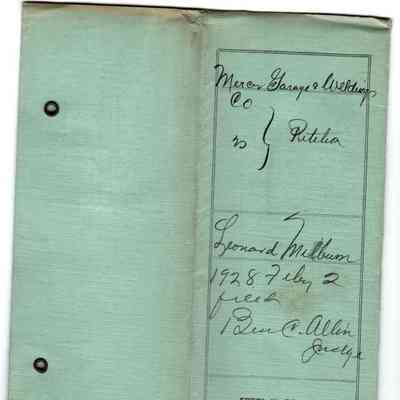 Mercer Garage & Welding
Co
vs } Petition
Leonard Milburn
1928 Feby 2
filed
Ben C. Allin
Judge